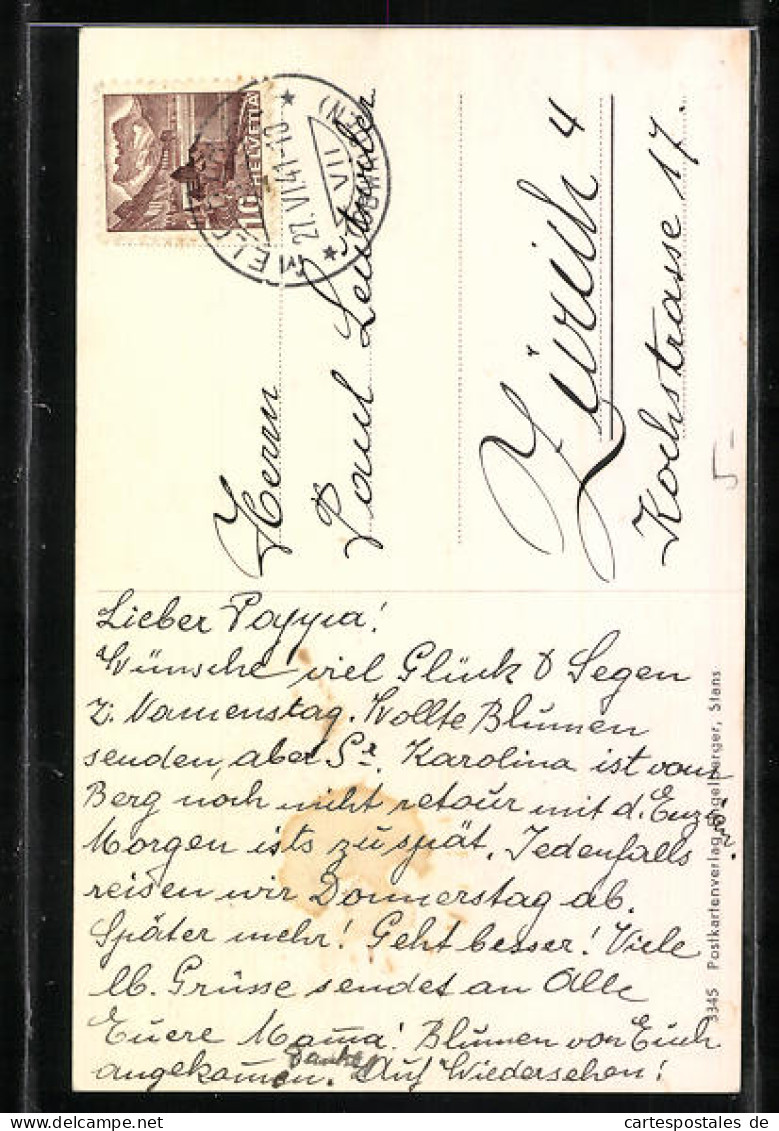 HELVETIA
10
27.VI.41-10
VII
Herrn
Paul
Zürich 4
Kochstrasse 17.
5-
Lieber Pappa!
Wünsche viel Glück & Segen
z. Namenstag. Wollte Blumen
senden, aber Sr. Karolina ist vom
Berg noch nicht retour mit d. Enzian.
Morgen ists zu spät. Jedenfalls
reisen wir Donnerstag ab.
Später mehr! Geht besser! Viele
lb. Grüsse sendet an Alle
Euere Mama! Blumen von Euch
angekommen. Danke! Auf Wiedersehen!
3345 Postkartenverlag Engelberger, Stans
cartespostales.de